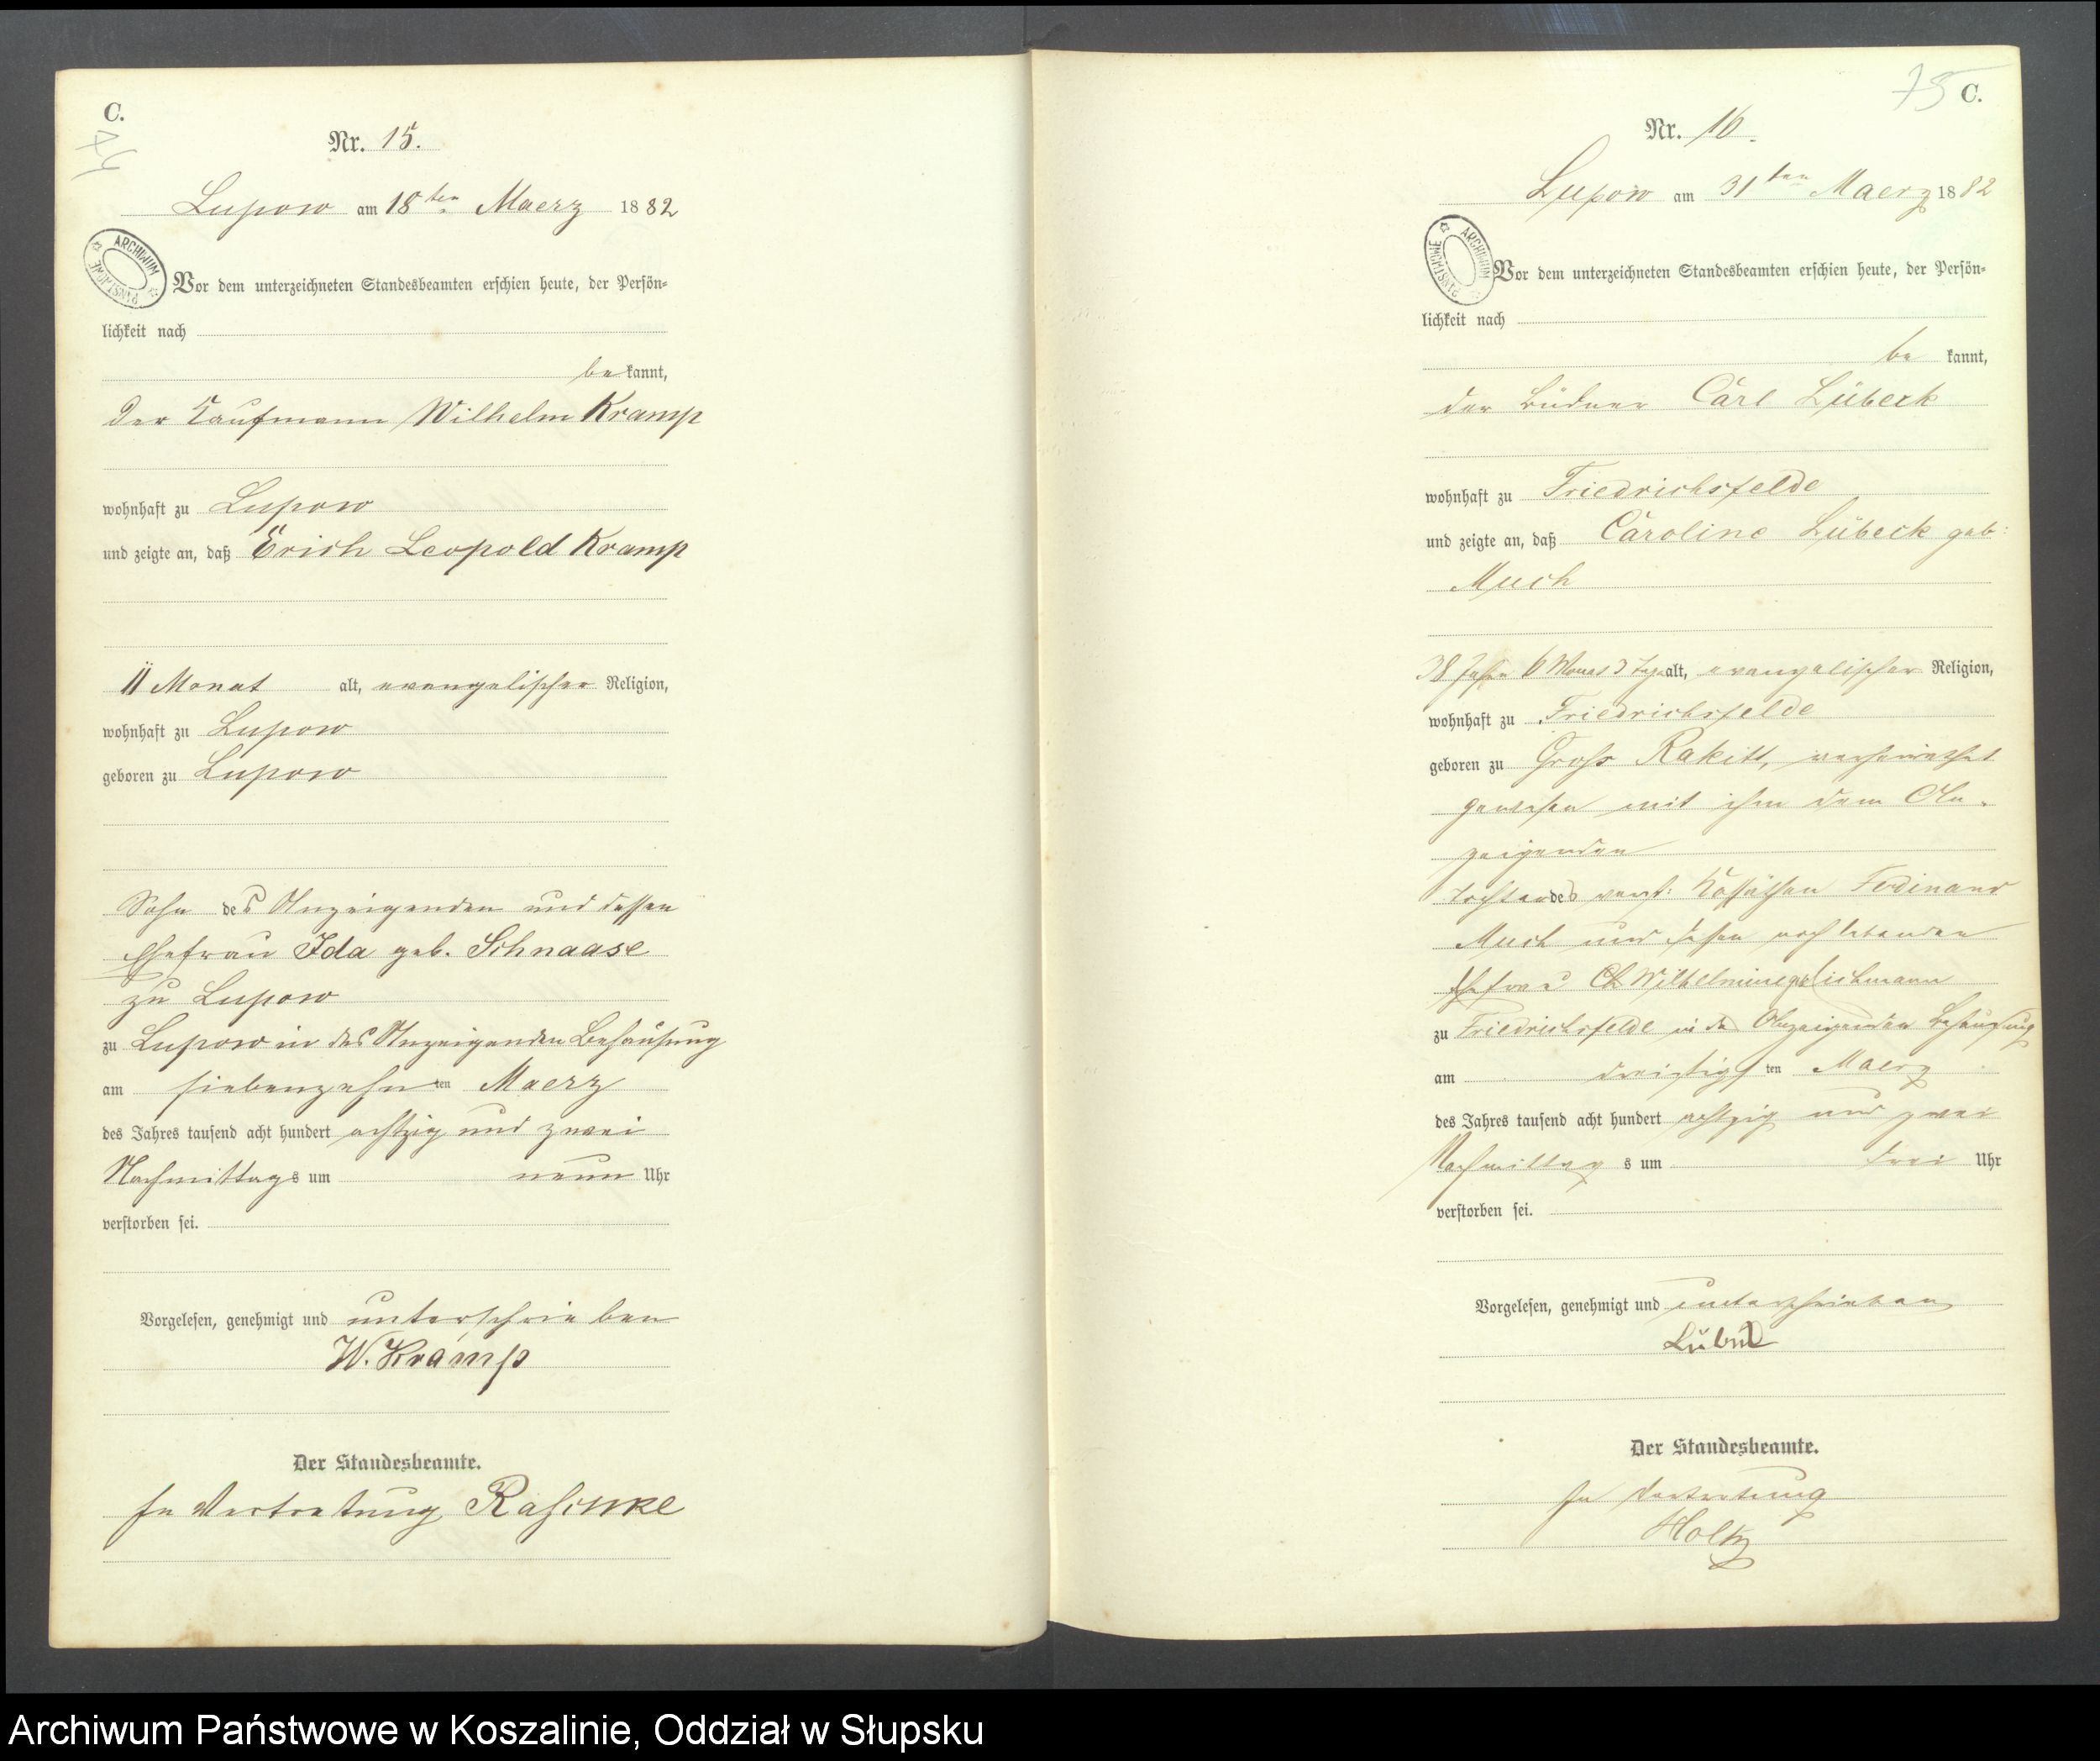 C.
74
Nr. 15.
Lupow am 18ten Maerz 1882
ARCHIWUM PAŃSTWOWE
Vor dem unterzeichneten Standesbeamten erschien heute, der Persön=
lichkeit nach
bekannt,
der Kaufmann Wilhelm Kramp
wohnhaft zu Lupow
und zeigte an, daß Erich Leopold Kramp
11 Monat alt, evangelischer Religion,
wohnhaft zu Lupow
geboren zu Lupow
Sohn des Anzeigenden und dessen
Ehefrau Ida geb. Schnaase
zu Lupow
zu Lupow in des Anzeigenden Behausung
am siebenzehnten Maerz
des Jahres tausend acht hundert achtzig und zwei
Nachmittags um neun Uhr
verstorben sei.
Vorgelesen, genehmigt und unterschrieben
W. Kramp
Der Standesbeamte.
In Vertretung Raschke
75 C.
Nr. 16.
Lupow am 31ten Maerz 1882
ARCHIWUM PAŃSTWOWE
Vor dem unterzeichneten Standesbeamten erschien heute, der Persön=
lichkeit nach
bekannt,
der Büdner Carl Lübeck
wohnhaft zu Friedrichsfelde
und zeigte an, daß Caroline Lübeck geb:
Much
38 Jahr 6 Monat 3 Tage alt, evangelischer Religion,
wohnhaft zu Friedrichsfelde
geboren zu Gross Rakitt, verheirathet
gewesen mit ihm dem An-
zeigenden
Tochter des verst: Kossäthen Ferdinand
Much und dessen noch lebenden
Ehefrau Wilhelmine geb
zu Friedrichsfelde in des Anzeigenden Behausung
am dreißigsten Maerz
des Jahres tausend acht hundert achtzig und zwei
Nachmittags um drei Uhr
verstorben sei.
Vorgelesen, genehmigt und unterschrieben
Lübeck
Der Standesbeamte.
In Vertretung
Holtz
Archiwum Państwowe w Koszalinie, Oddział w Słupsku